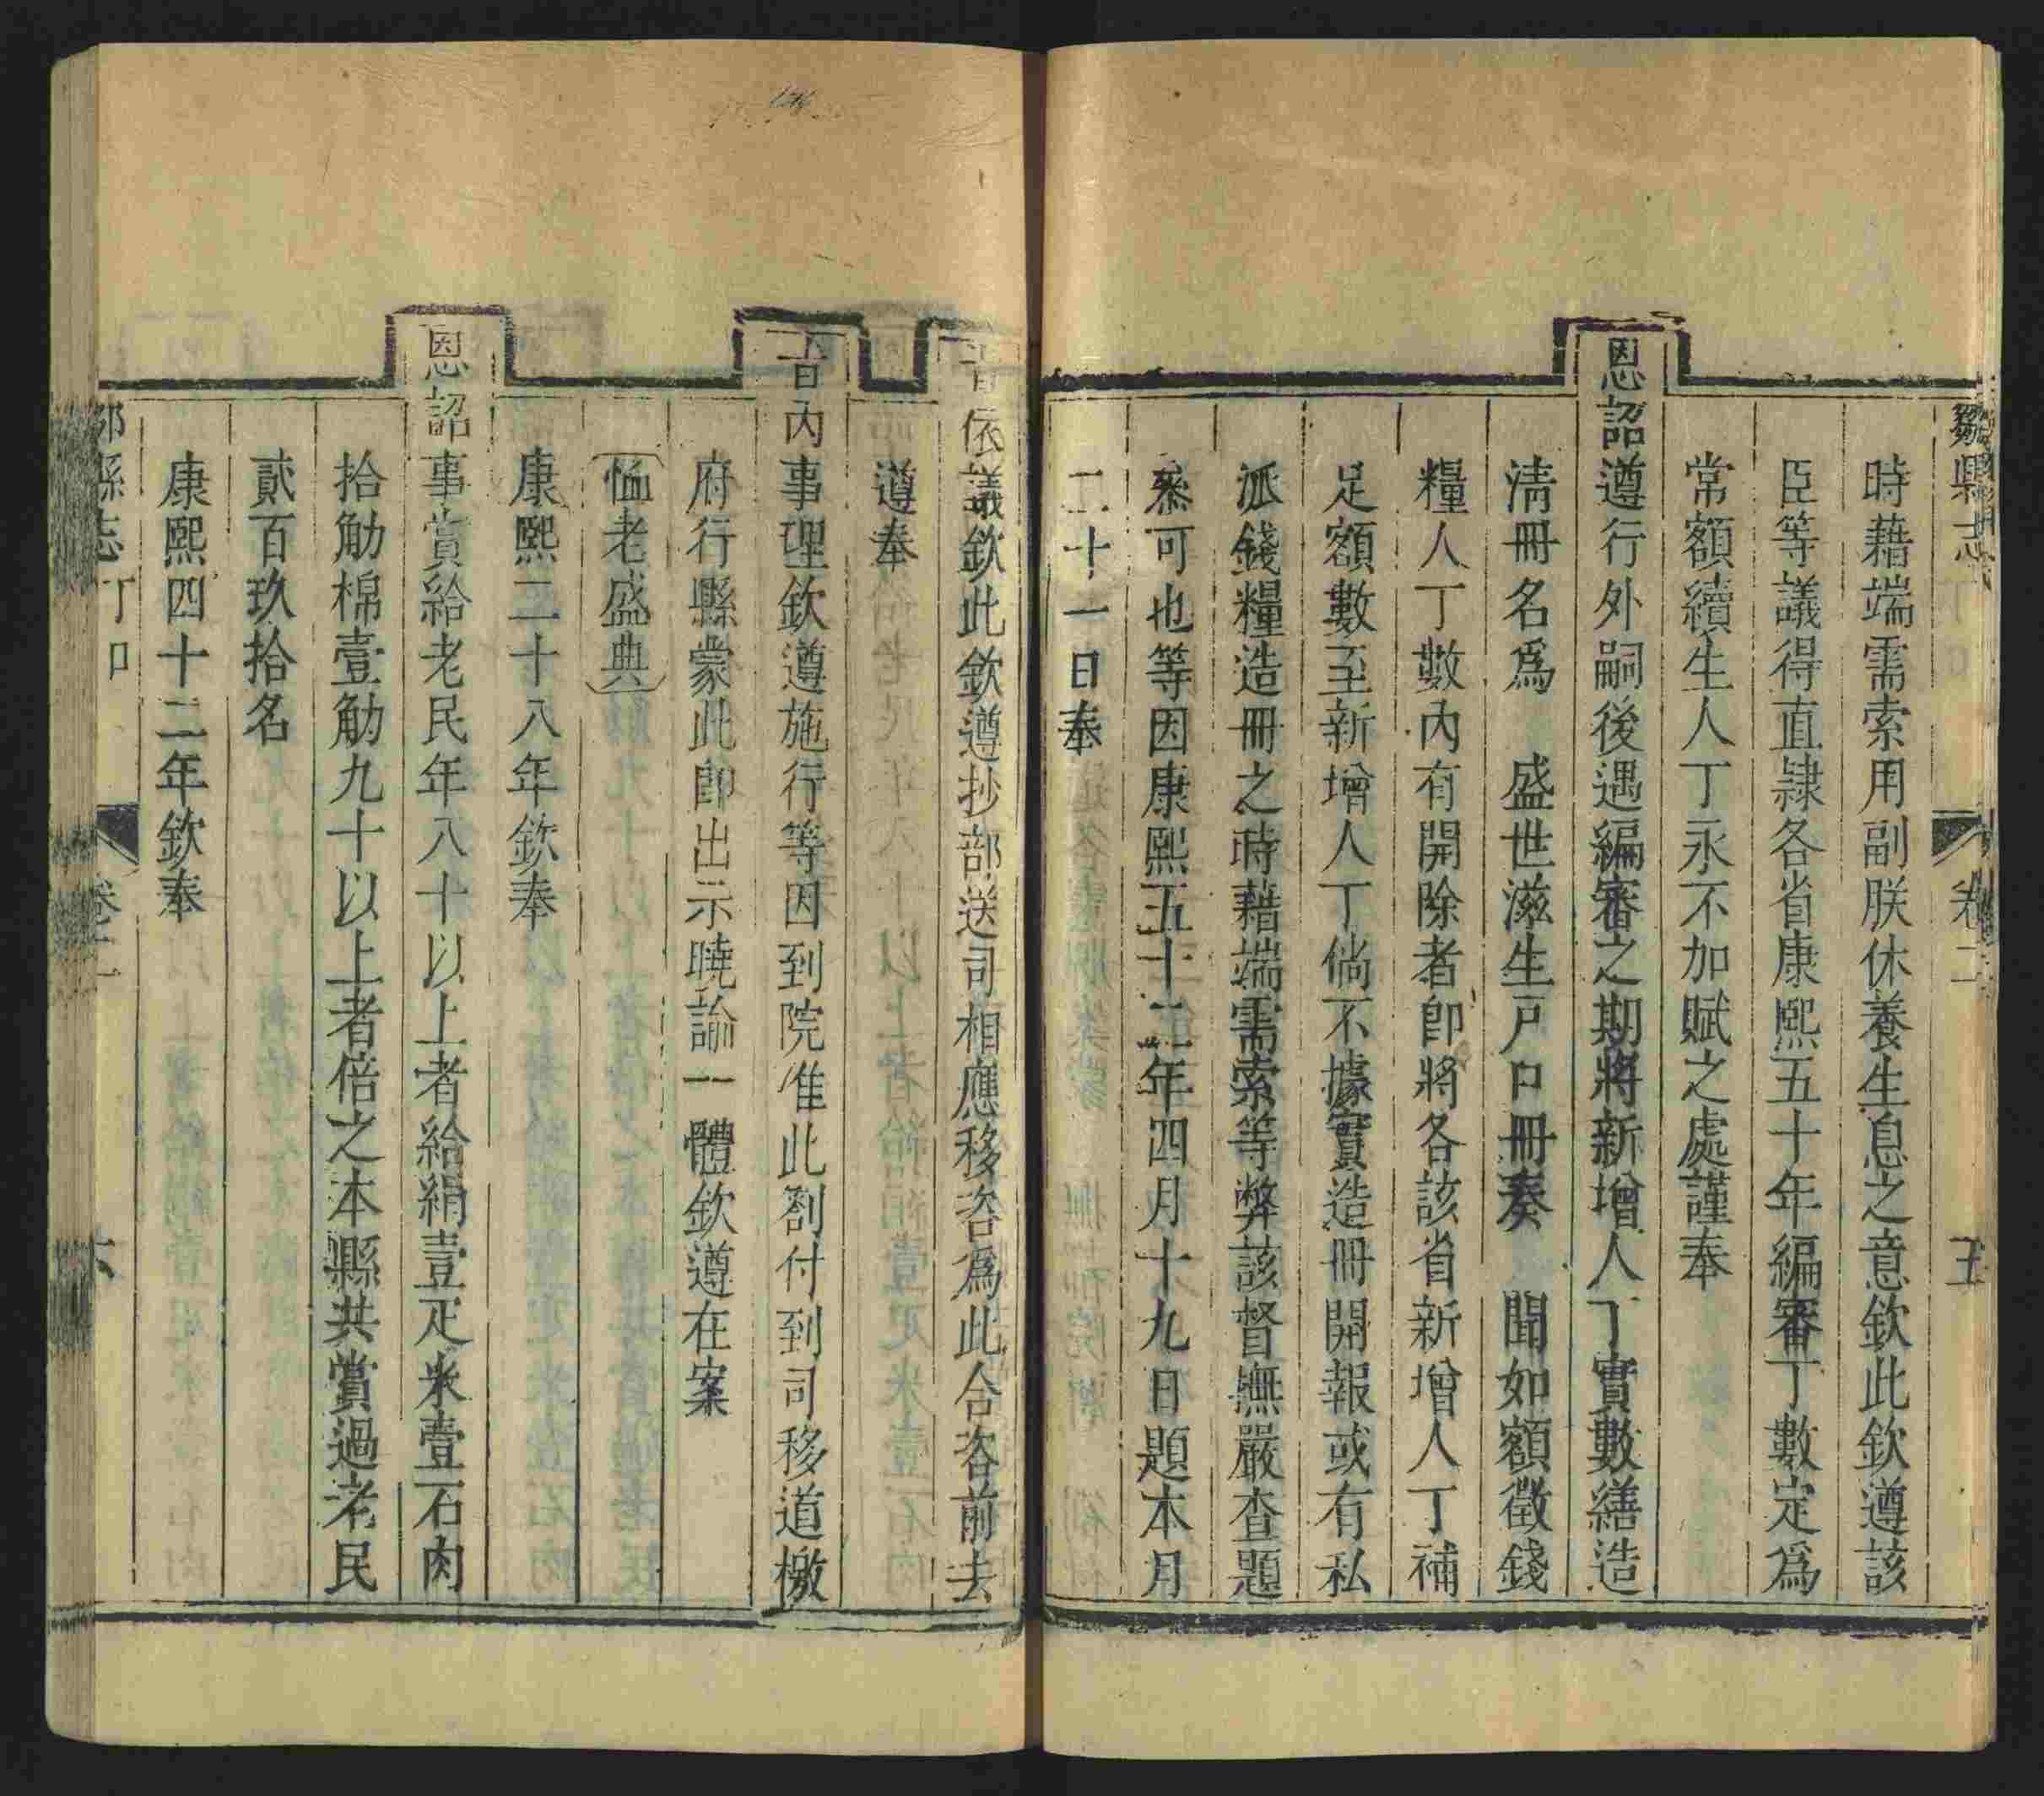 鄒縣志
卷二
五
時藉端需索用副朕休養生息之意欽此欽遵該
臣等議得直隷各省康熙五十年編審丁數定爲
常額續生人丁永不加賦之處謹奉
恩詔遵行外嗣後遇編審之期將新增人丁實數繕造
淸冊名爲　盛世滋生戸口冊奏　聞如額徵錢
糧人丁數內有開除者卽將各該省新增人丁補
足額數至新增人丁倘不據實造冊開報或有私
派錢糧造冊之時藉端需索等弊該督撫嚴查題
叅可也等因康熙五十二年四月十九日題本月
二十一日奉
旨依議欽此欽遵抄部送司相應移咨爲此合咨前去
遵奉
旨內事理欽遵施行等因到院准此劄付到司移道檄
府行縣蒙此卽出示曉諭一體欽遵在案
恤老盛典
康熙二十八年欽奉
恩詔事賞給老民年八十以上者給絹壹疋米壹石肉
拾觔棉壹觔九十以上者倍之本縣共賞過老民
貳百玖拾名
康熙四十二年欽奉
鄒縣志
卷二
六